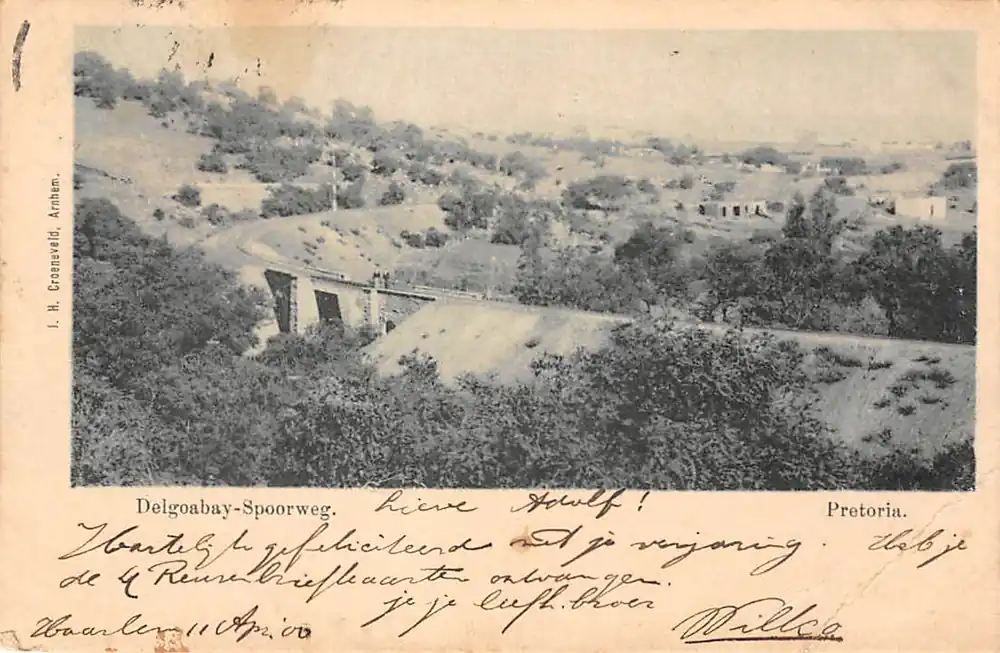 J. H. Croeneveld, Arnhem.
Delgoabay-Spoorweg.
Pretoria.
Lieve Adolf!
Hartelijk gefeliciteerd met je verjaring. Heb je
de 4 briefkaarten ontvangen.
je je liefh. broer
Haarlem 11 Apr. 00